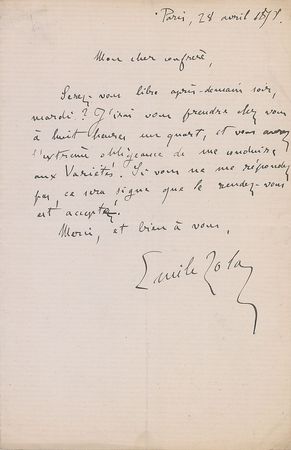 Paris, 28 avril 1878.
Mon cher confrère,
Serez-vous libre après-demain soir,
mardi ? J'irai vous prendre chez vous
à huit heures un quart, et vous aurez
l'extrême obligeance de me conduire
aux Variétés. Si vous ne me répondez
pas, ce sera signe que le rendez-vous
est accepté.
Merci, et bien à vous,
Emile Zola